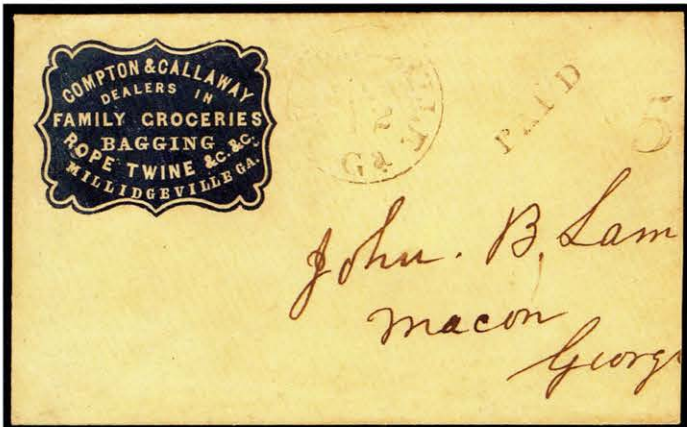 COMPTON & CALLAWAY
DEALERS IN
FAMILY GROCERIES
BAGGING
ROPE TWINE &C. &C.
MILLIDGEVILLE GA.
2
GA
PAID
5
John. B. Lam
Macon
Georg